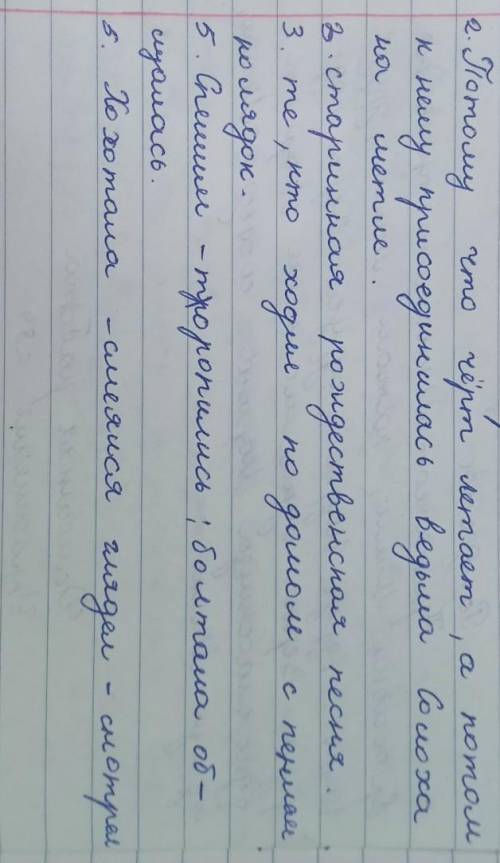 2. Потому что чёрт летает, а потом
к нему присоединилась ведьма Солоха
на метле.
2. старинная рождественская песня.
3. те, кто ходил по домом с пением
колядок.
5. Спешили - торопились; болтала об-
щалась.
5. Хохотала - смеялися глядел - смотрел